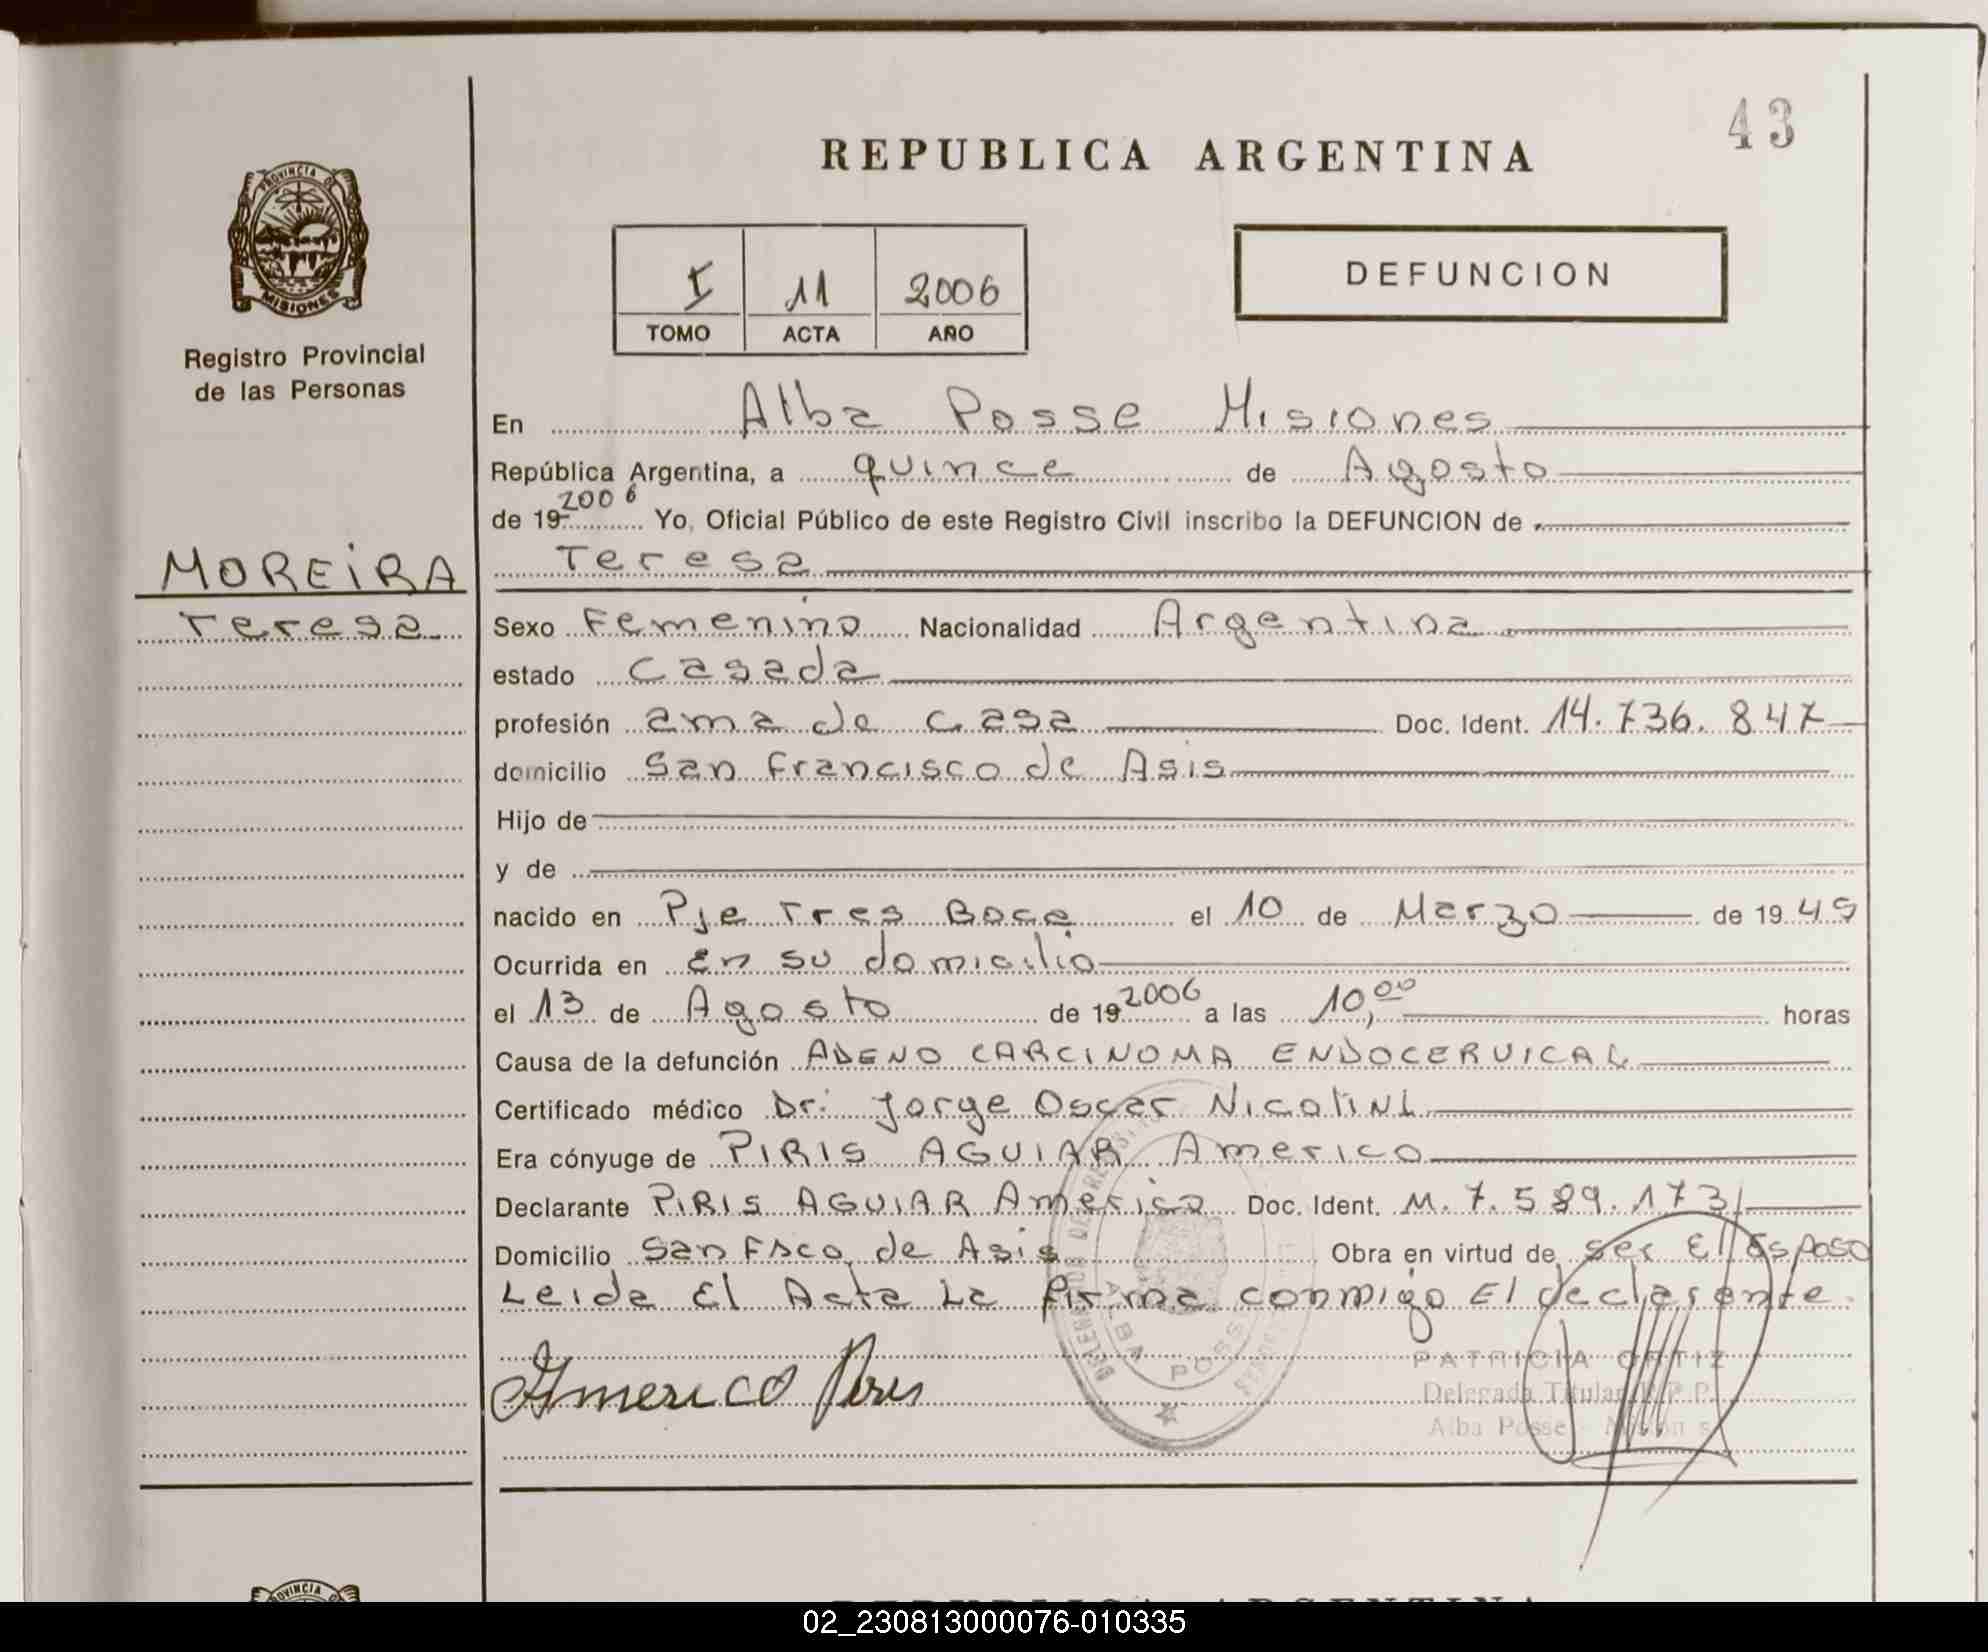 43
REPUBLICA ARGENTINA
PROVINCIA DE
MISIONES
I 11 2006
TOMO ACTA AÑO
DEFUNCION
Registro Provincial
de las Personas
En Alba Posse Misiones
República Argentina, a quince de Agosto
de 19 2006 Yo, Oficial Público de este Registro Civil inscribo la DEFUNCION de
MOREIRA
Teresa
Teresa
Sexo Femenino Nacionalidad Argentina
estado Casada
profesión ama de casa Doc. Ident. 14.736.847
domicilio San Francisco de Asis
Hijo de
y de
nacido en Pje Tres Boca el 10 de Marzo de 19 49
Ocurrida en En su domicilio
el 13 de Agosto de 19 2006 a las 10,00 horas
Causa de la defunción ADENO CARCINOMA ENDOCERVICAL
Certificado médico Dr. Jorge Oscar Nicolini
Era cónyuge de PIRIS AGUIAR Americo
Declarante PIRIS AGUIAR Americo Doc. Ident. M. 7.589.173
Domicilio San Fsco. de Asis Obra en virtud de ser El Esposo
Leida El Acta La firma conmigo El declarante.
Americo Piris
ALBA POSSE
PATRICIA ORTIZ
Delegada Titular R.P.P.
Alba Posse - Misiones
PROVINCIA
REPUBLICA ARGENTINA
02_230813000076-010335